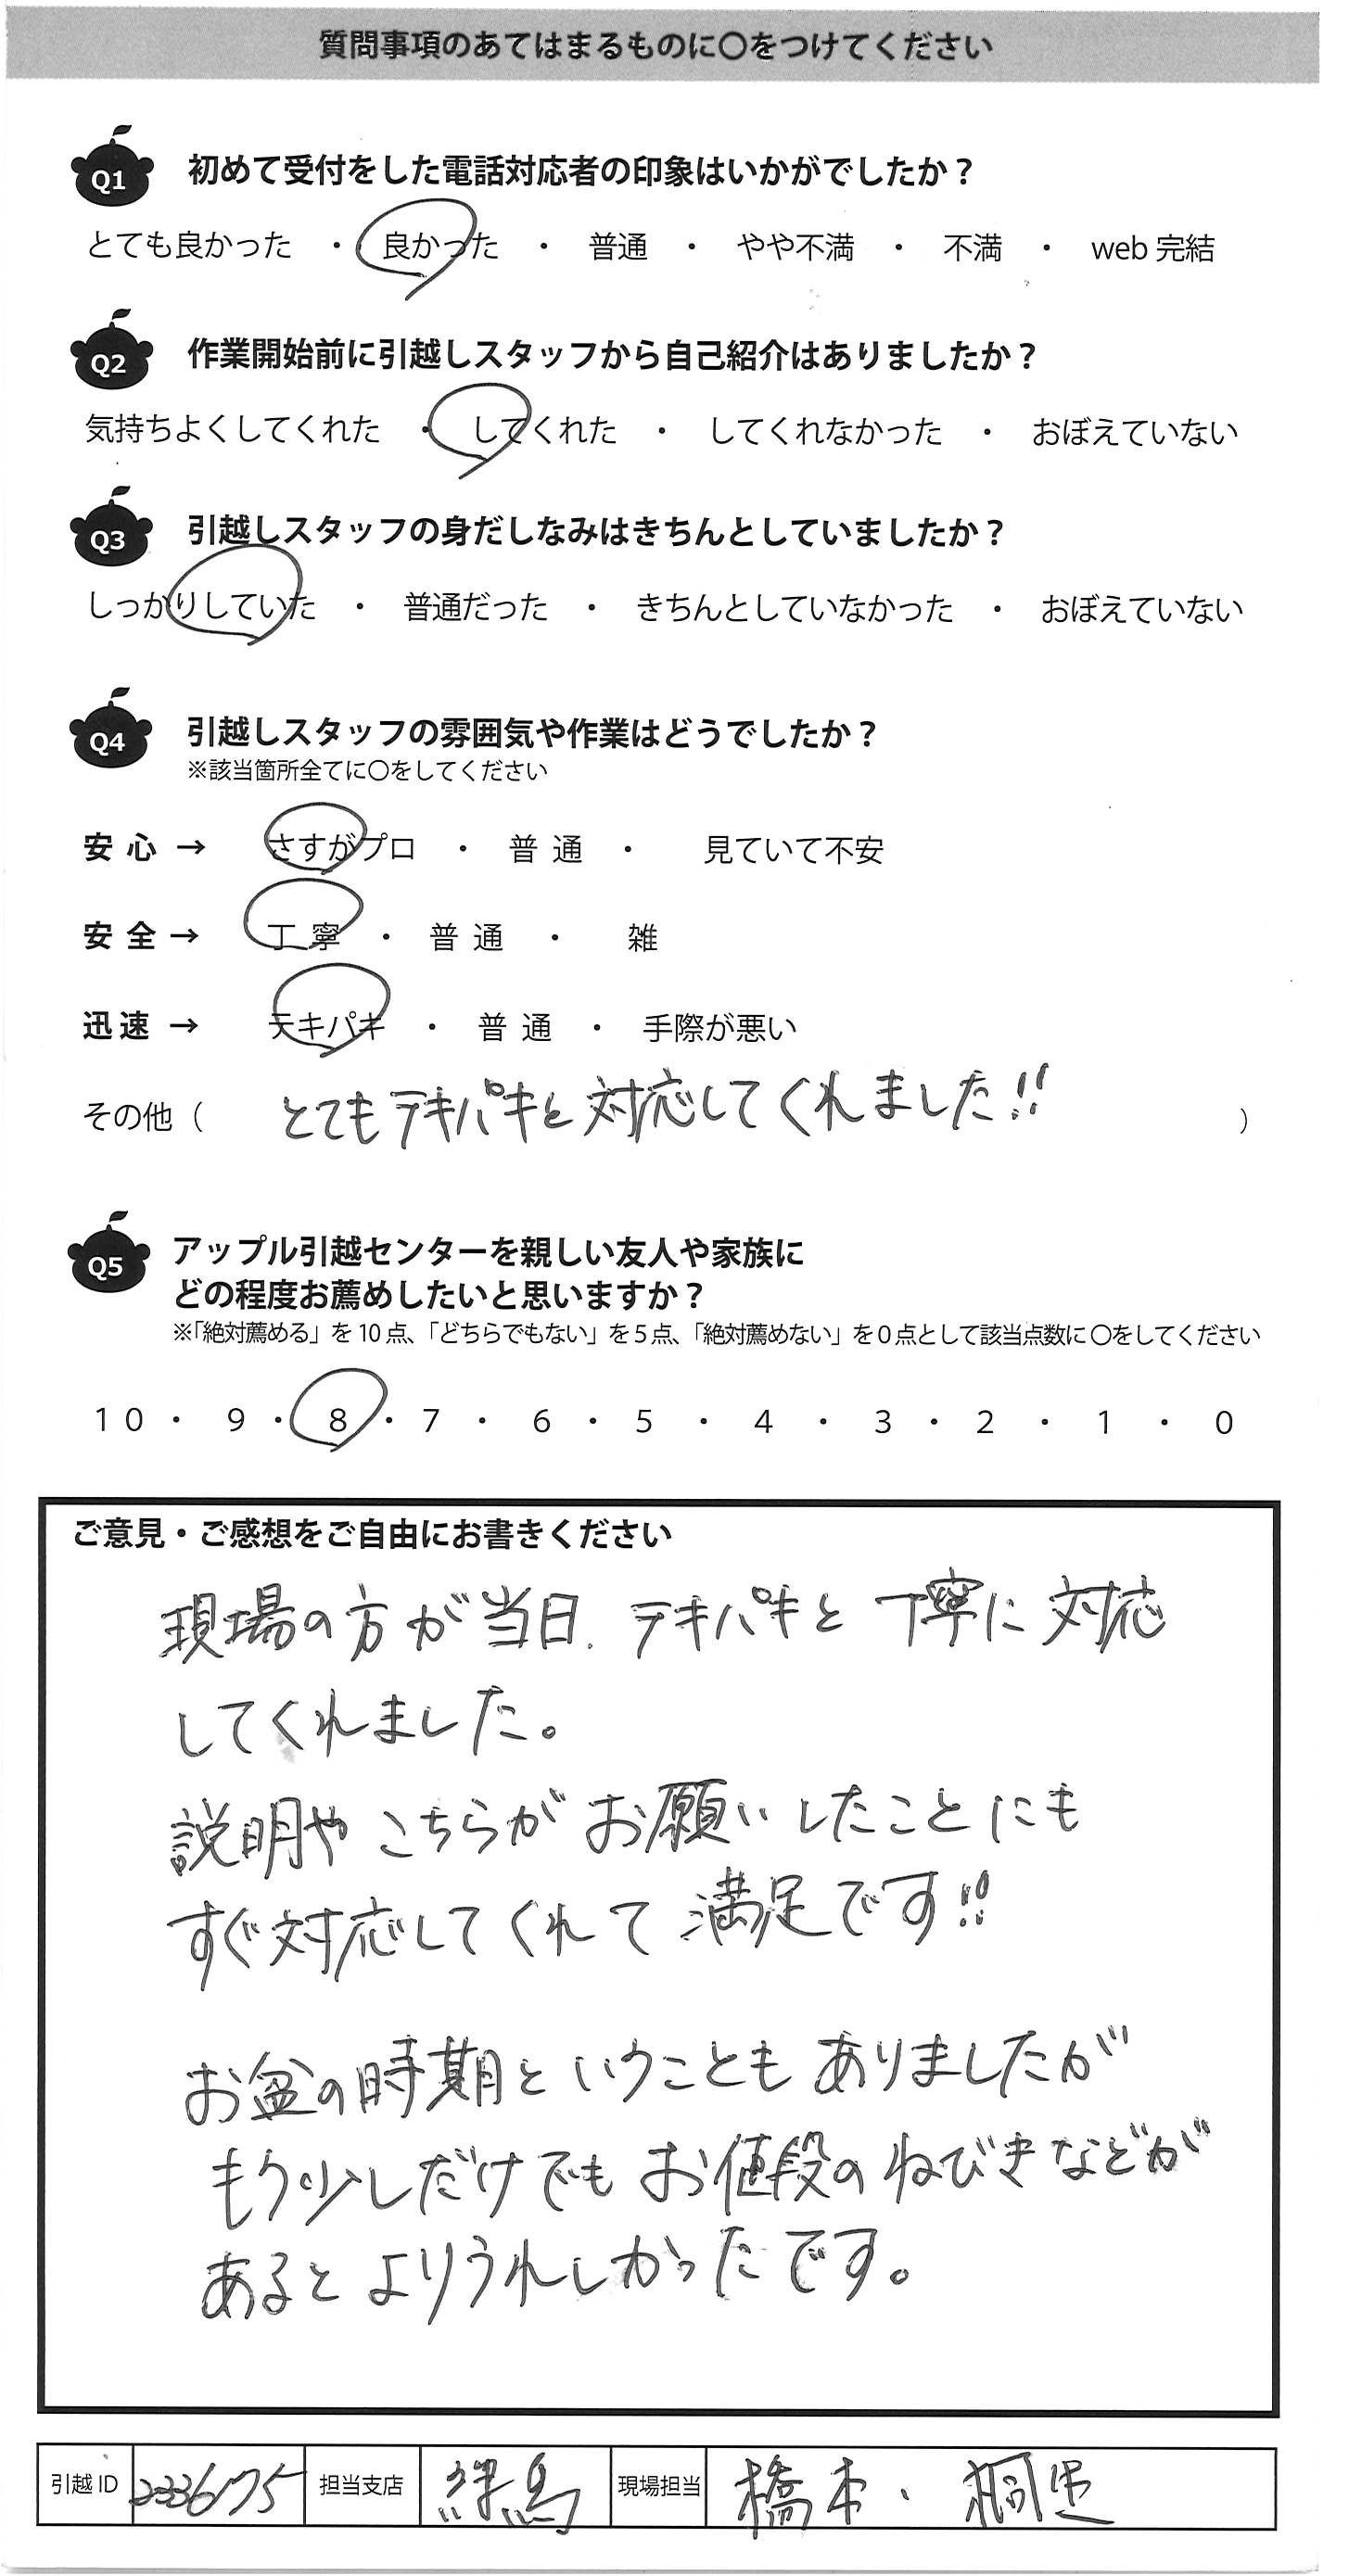 質問事項のあてはまるものに〇をつけてください
Q1 初めて受付をした電話対応者の印象はいかがでしたか？
とても良かった ・ 良かった ・ 普通 ・ やや不満 ・ 不満 ・ web 完結
Q2 作業開始前に引越しスタッフから自己紹介はありましたか？
気持ちよくしてくれた ・ してくれた ・ してくれなかった ・ おぼえていない
Q3 引越しスタッフの身だしなみはきちんとしていましたか？
しっかりしていた ・ 普通だった ・ きちんとしていなかった ・ おぼえていない
Q4 引越しスタッフの雰囲気や作業はどうでしたか？
※該当箇所全てに〇をしてください
安心 → さすがプロ ・ 普通 ・ 見ていて不安
安全 → 丁寧 ・ 普通 ・ 雑
迅速 → テキパキ ・ 普通 ・ 手際が悪い
その他（ とてもテキパキと対応してくれました!! ）
Q5 アップル引越センターを親しい友人や家族に
どの程度お薦めしたいと思いますか？
※「絶対薦める」を 10 点、「どちらでもない」を 5 点、「絶対薦めない」を 0 点として該当点数に 〇をしてください
10 ・ 9 ・ 8 ・ 7 ・ 6 ・ 5 ・ 4 ・ 3 ・ 2 ・ 1 ・ 0
ご意見・ご感想をご自由にお書きください
現場の方が当日、テキパキと丁寧に対応
してくれました。
説明やこちらがお願いしたことにも
すぐ対応してくれて満足です!!
お盆の時期ということもありましたが
もう少しだけでもお値段のねびきなどが
あるとよりうれしかったです。
引越 ID 2333675 担当支店 群馬 現場担当 橋本・